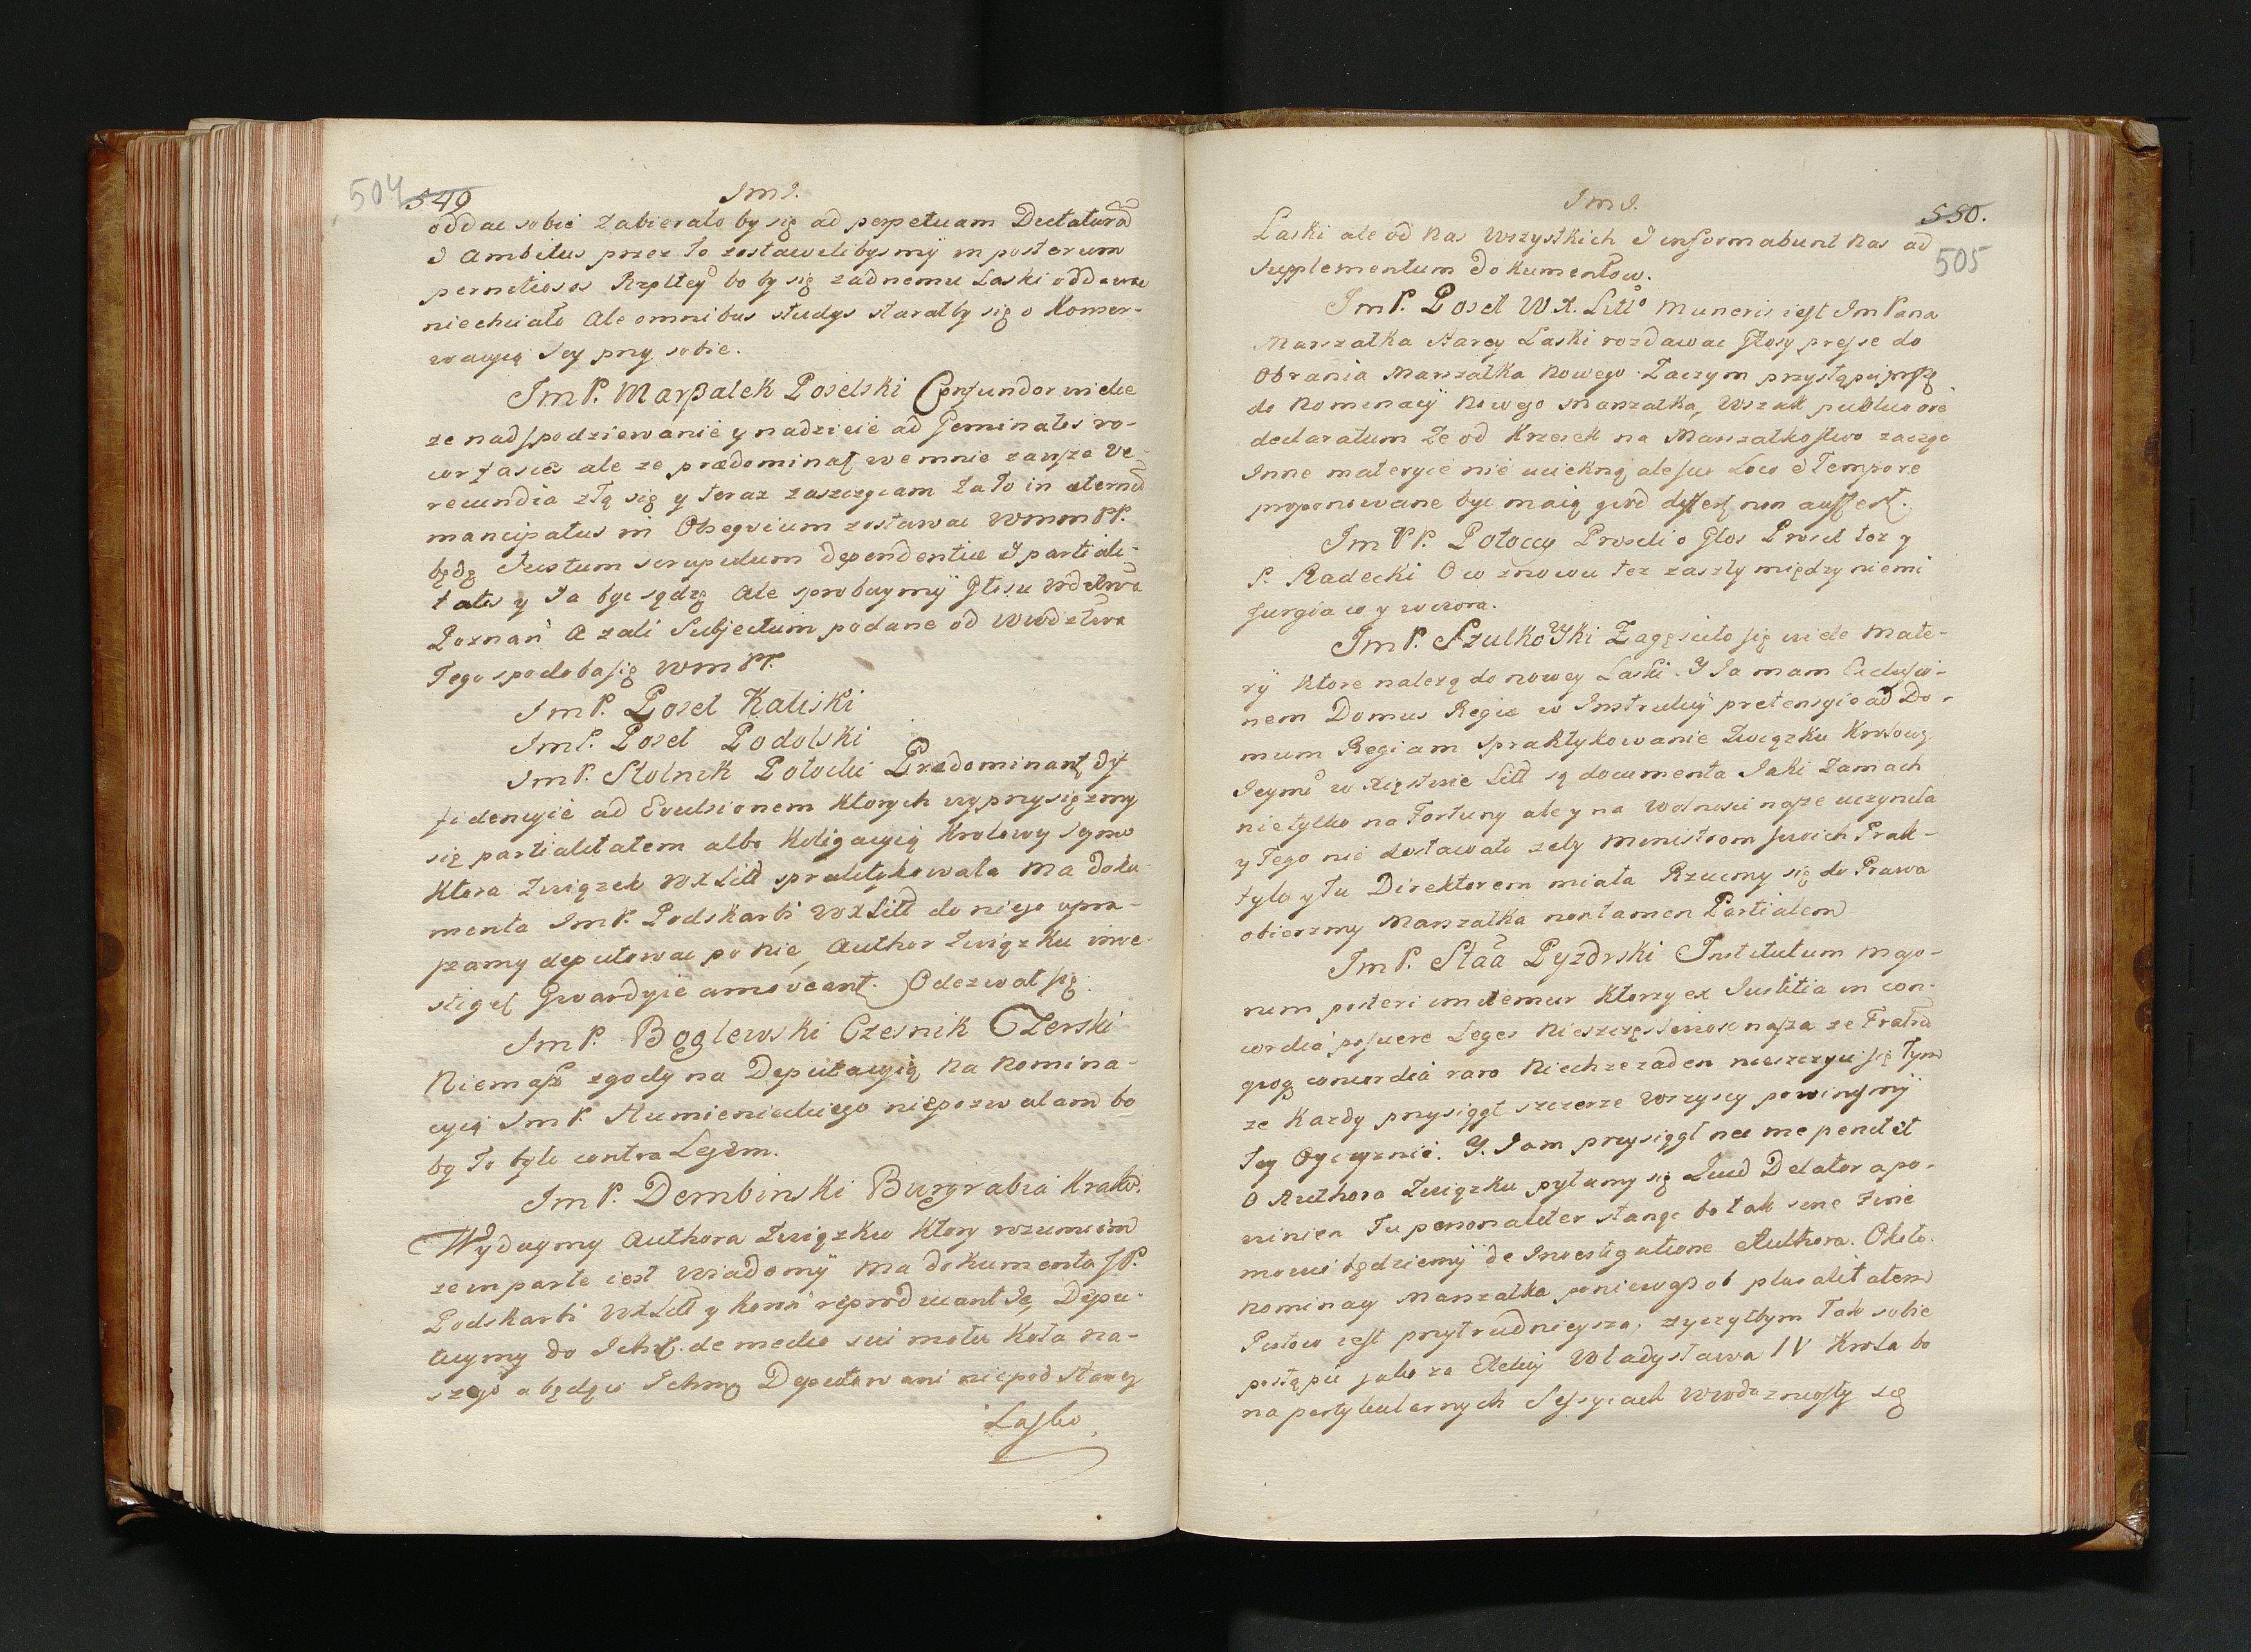 504 549
J m J.
oddac sobie zabierało by się ad perpetuam Dictaturā
J Ambitus przez to zostawilibysmÿ in posterum
pernitiosos Rzpltey bo by się zadnemu Laski oddawac
niechciało Ale omnibus studys starałby się o Konser-
wacyią Jey przy sobie.
JmP. Marszałek Poselski Confundor wielce
ze nad spodziewanie y nadzieie ad Geminatas vo-
ces ale ze prædominat we mnie zawsze Ve-
recundia złą się y teraz zaszczycam Za to in æternū
mancipatus in Obsequium zostawac WmmPP.
będę Justum scrupulum dependentiæ J partiali-
tatis y Ja byc sądzę Ale sprobuymÿ Głosu Wdztwa
Poznan A zali Subjectum podane od Wwdztwa
Tego spodoba się WmPP.
JmP. Poseł Kaliski
JmP. Poseł Podolski
JmP. Stolnik Potocki Prædominant dif
fidencyie ad Evulsionem ktorych wyprzysięzmy
się partialitatem albo Koligacyią Krolowy Jeymo
Ktora Związek WXLitt spraktykowała Ma doku-
menta JmP. Podskarbi WXLitt do niego upra-
szamy deputowac po nie, Author Związku inve-
stiget Gwardyie amoveant. Odezwał się
JmP. Boglewski Czesnik Czerski
Niemasz zgody na Deputacyią na nomina-
cyią JmP. Humienieckiego niepozwalam bo
by to było contra Legem.
JmP. Dembinski Burgrabia Krakow.
Wydaymy Authora Związku ktory rozumiem
ze in parte iest wiadomÿ Ma dokumenta JP.
Podskarbi WXLitt y Koron reproducant Je Depu-
tuymy do Jchm. de medio sui motu Koła na-
szego a będąc Jchmę Deputowani nie pod Starey
Lasko
J m J.
550.
505
Laski ale od nas wszystkich J informabunt nas ad
Supplementum dokumentow.
JmP. Poseł W.X. Litto Muneris iest JmPana
Marszałka Starey Laski rozdawac Głosy presse do
Obrania Marszałka nowego Zaczym przystąpic proszę
do Nominacyÿ nowego Marszałka, Wszak publico ore
declaratum ze od Krzesek na Marszałkostwo zacząc
Inne materyie nie uciekną ale suo Loco & Tempore
proponowane byc maią quod differt non auffert.
JmPP. Potoccy Prosili o Głos Prosił toz y
P. Radecki O co znowu tez zaszły między niemi
jurgia co y wczora.
JmP. Szulkowski Zagęsciło się wiele mate-
rÿ ktore nalezą do nowey Laski. Y Ja mam Exclusio-
nem Domus Regiæ w Instrukcyÿ pretensyie ad Do-
mum Regiam Spraktykowanie Związku Krolowy
Jeymo w Xięstwie Litt są documenta Jaki Zamach
nietylko na Fortuny ale y na wolnosci nasze uczyniła
y Tego nie dostawało zeby ministrom swoich Prak-
tyk y tu Direktorem miała Rzucmy się do Prawa
obierzmy Marszałka non tamen Partialem
JmP. Staa Pyzdrski Institutum mgo-
num posteri imitemur Ktorzy ex Justitia in con-
cordia posuere Leges Nieszczęsliwosc nasza ze Fratrū
quoq concordia raro Niechze zaden nieszczyci się tym
ze kazdy przysiągł szczerze wszyscy powinnysmÿ
Tey Oyczyznie. Y Jam przysiągł nec me penitet
O Authora Związku pytamy się Quid Delator apo-
winien Tu personaliter stanąc bo tak sine fine
mowic będziemÿ de Investigatione Authora. Około
Nominacy Marszałka poniewasz ob pluralitatem
Posłow iest przytrudnieysza; zyczyłbym tak sobie
postąpic jako za Elekcyÿ Władysława IV Krola bo
na partykularnych Sessyiach Wwdz znosiły się